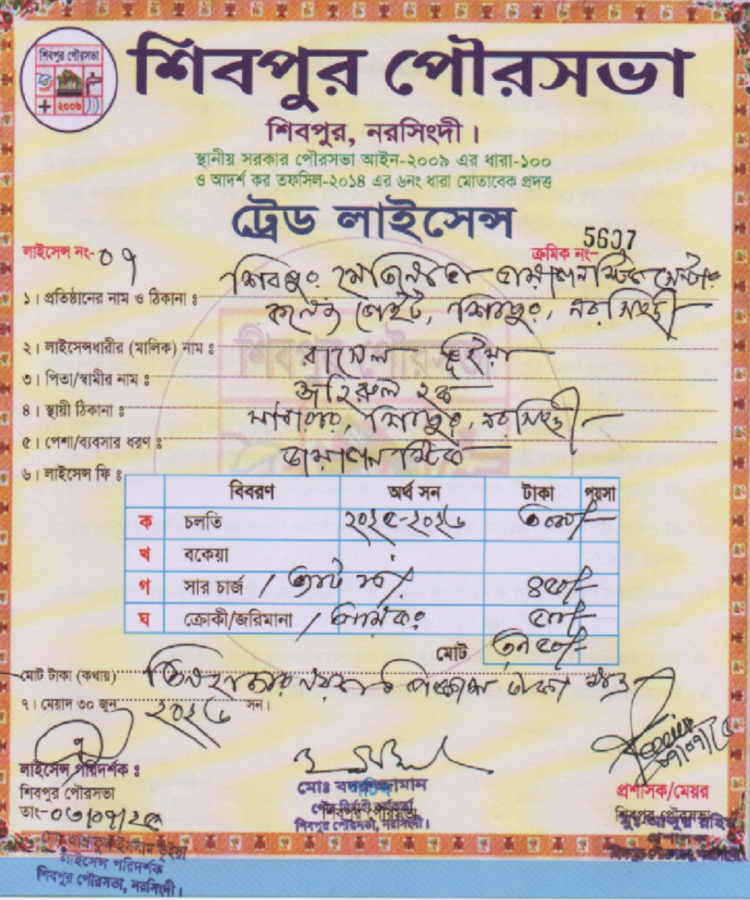 শিবপুর পৌরসভা
২০০৬
শিবপুর পৌরসভা
শিবপুর, নরসিংদী।
স্থানীয় সরকার পৌরসভা আইন-২০০৯ এর ধারা-১০০
ও আদর্শ কর তফসিল-২০১৪ এর ৬নং ধারা মোতাবেক প্রদত্ত
ট্রেড লাইসেন্স
লাইসেন্স নং- ০৭
ক্রমিক নং- 5607
১। প্রতিষ্ঠানের নাম ও ঠিকানা ঃ শিবপুর ডায়াগনস্টিক সেন্টার
কলেজ গেইট, শিবপুর, নরসিংদী
২। লাইসেন্সধারীর (মালিক) নাম ঃ রাসেল ভূইয়া
৩। পিতা/স্বামীর নাম ঃ জহিরুল হক
৪। স্থায়ী ঠিকানা ঃ শিবপুর, নরসিংদী
৫। পেশা/ব্যবসার ধরণ ঃ ডায়াগনস্টিক
৬। লাইসেন্স ফি ঃ
বিবরণ অর্থ সন টাকা পয়সা
ক চলতি ২০২৫-২০২৬ ৩০০০/-
খ বকেয়া
গ সার চার্জ / ভ্যাট ৪৫০/-
ঘ ক্রোকী/জরিমানা / ৫০০/-
মোট ৩৯৫০/-
মোট টাকা (কথায়) তিন হাজার নয়শত পঞ্চাশ টাকা মাত্র
৭। মেয়াদ ৩০ জুন ২০২৬ সন।
লাইসেন্স পরিদর্শক ঃ
শিবপুর পৌরসভা
তাং-০৩/০৭/২৫
লাইসেন্স পরিদর্শক
শিবপুর পৌরসভা, নরসিংদী।
মোঃ বদরুজ্জামান
পৌর নির্বাহী কর্মকর্তা
শিবপুর পৌরসভা, নরসিংদী।
প্রশাসক/মেয়র
শিবপুর পৌরসভা